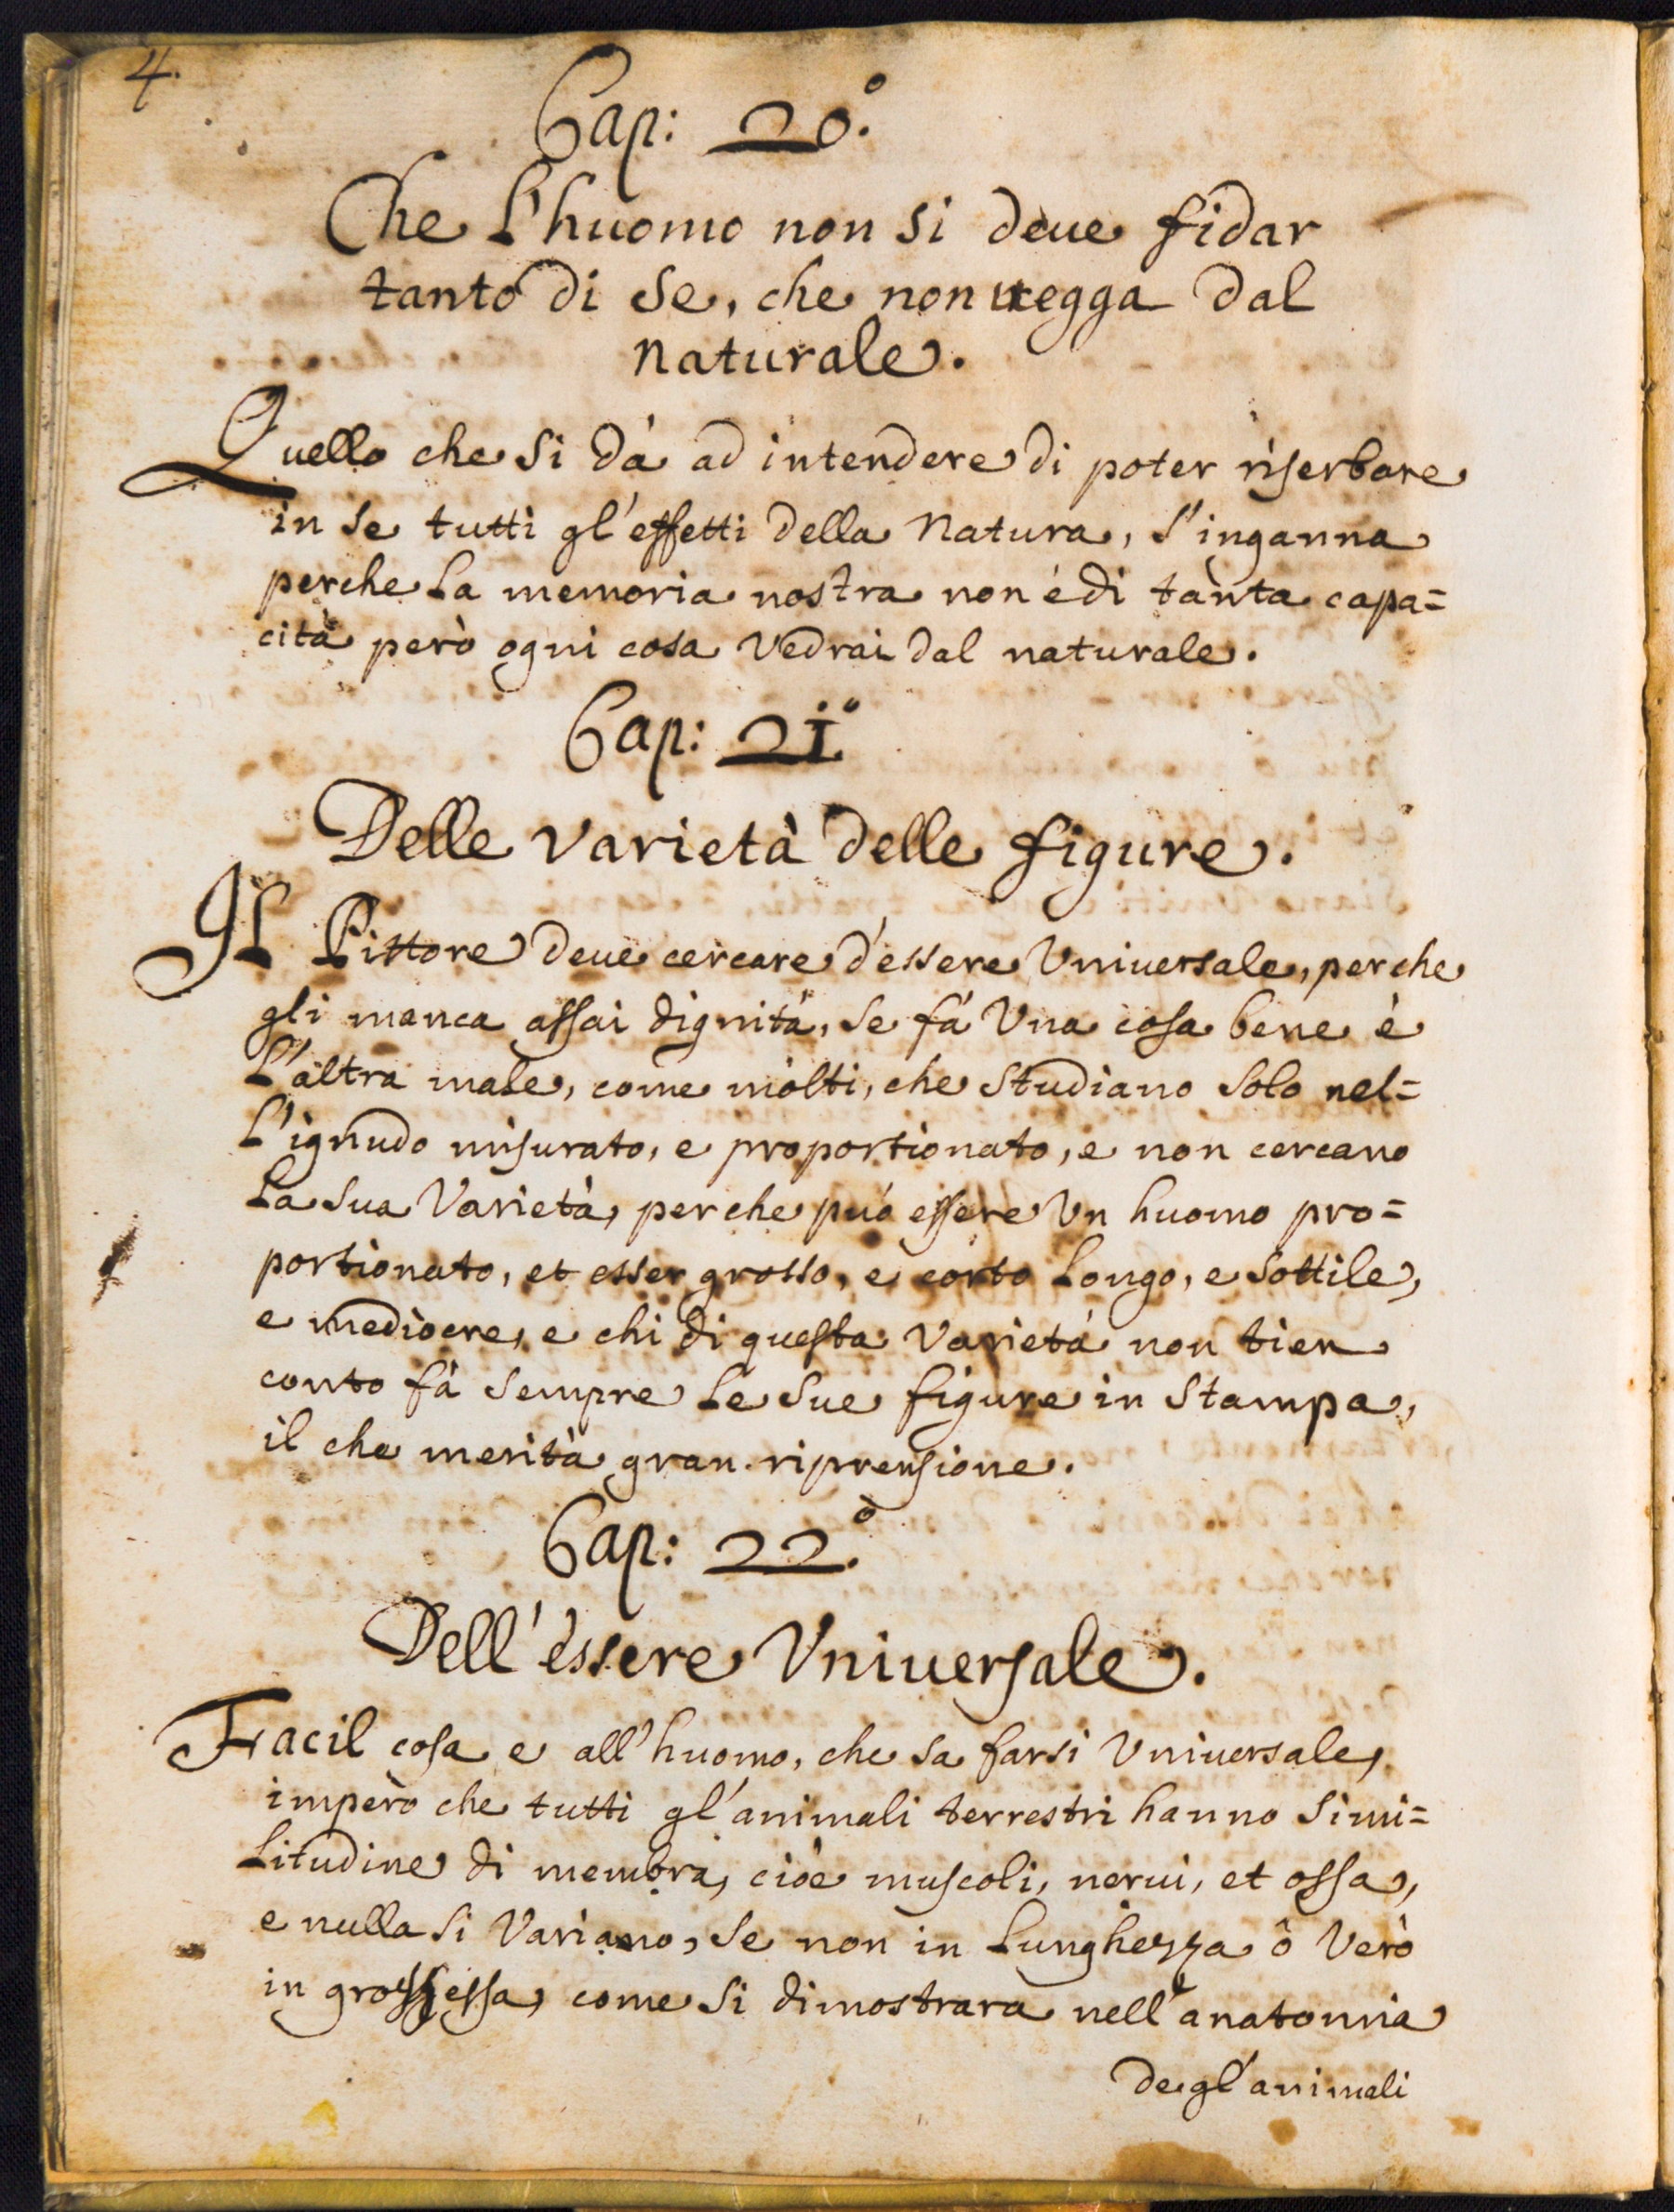 4.
Cap: 20.º
Che l'huomo non si deue fidar
tanto di se, che non uegga dal
naturale.
Quello che si dà ad intendere di poter riserbare
in se tutti gl'effetti della Natura, s'inganna
perche la memoria nostra non é di tanta capa=
cità però ogni cosa Vedrai dal naturale.
Cap: 21.º
Delle varietà delle figure.
Il Pittore deue cercare d'essere Vniuersale, perche
gli manca assai dignità, se fá Vna cosa bene è
l'altra male, come molti, che studiano solo nel=
l'ignudo misurato, e proportionato, e non cercano
la sua Varietà, perche può essere Vn huomo pro=
portionato, et esser grosso, e corto longo, e sottile,
e mediocre, e chi di questa Varietá non tien
conto fà sempre le sue figure in stampa,
il che merità gran riprensione.
Cap: 22.º
Dell'èssere Vniuersale.
Facil cosa e all'huomo, che sa farsi Vniuersale,
imperò che tutti gl'animali terrestri hanno simi=
litudine di membra, cioè muscoli, nerui, et ossa,
e nulla si Variano, se non in lunghezza ô Verò
in grossessa, come si dimostrara nell'anatomia
degl'animali